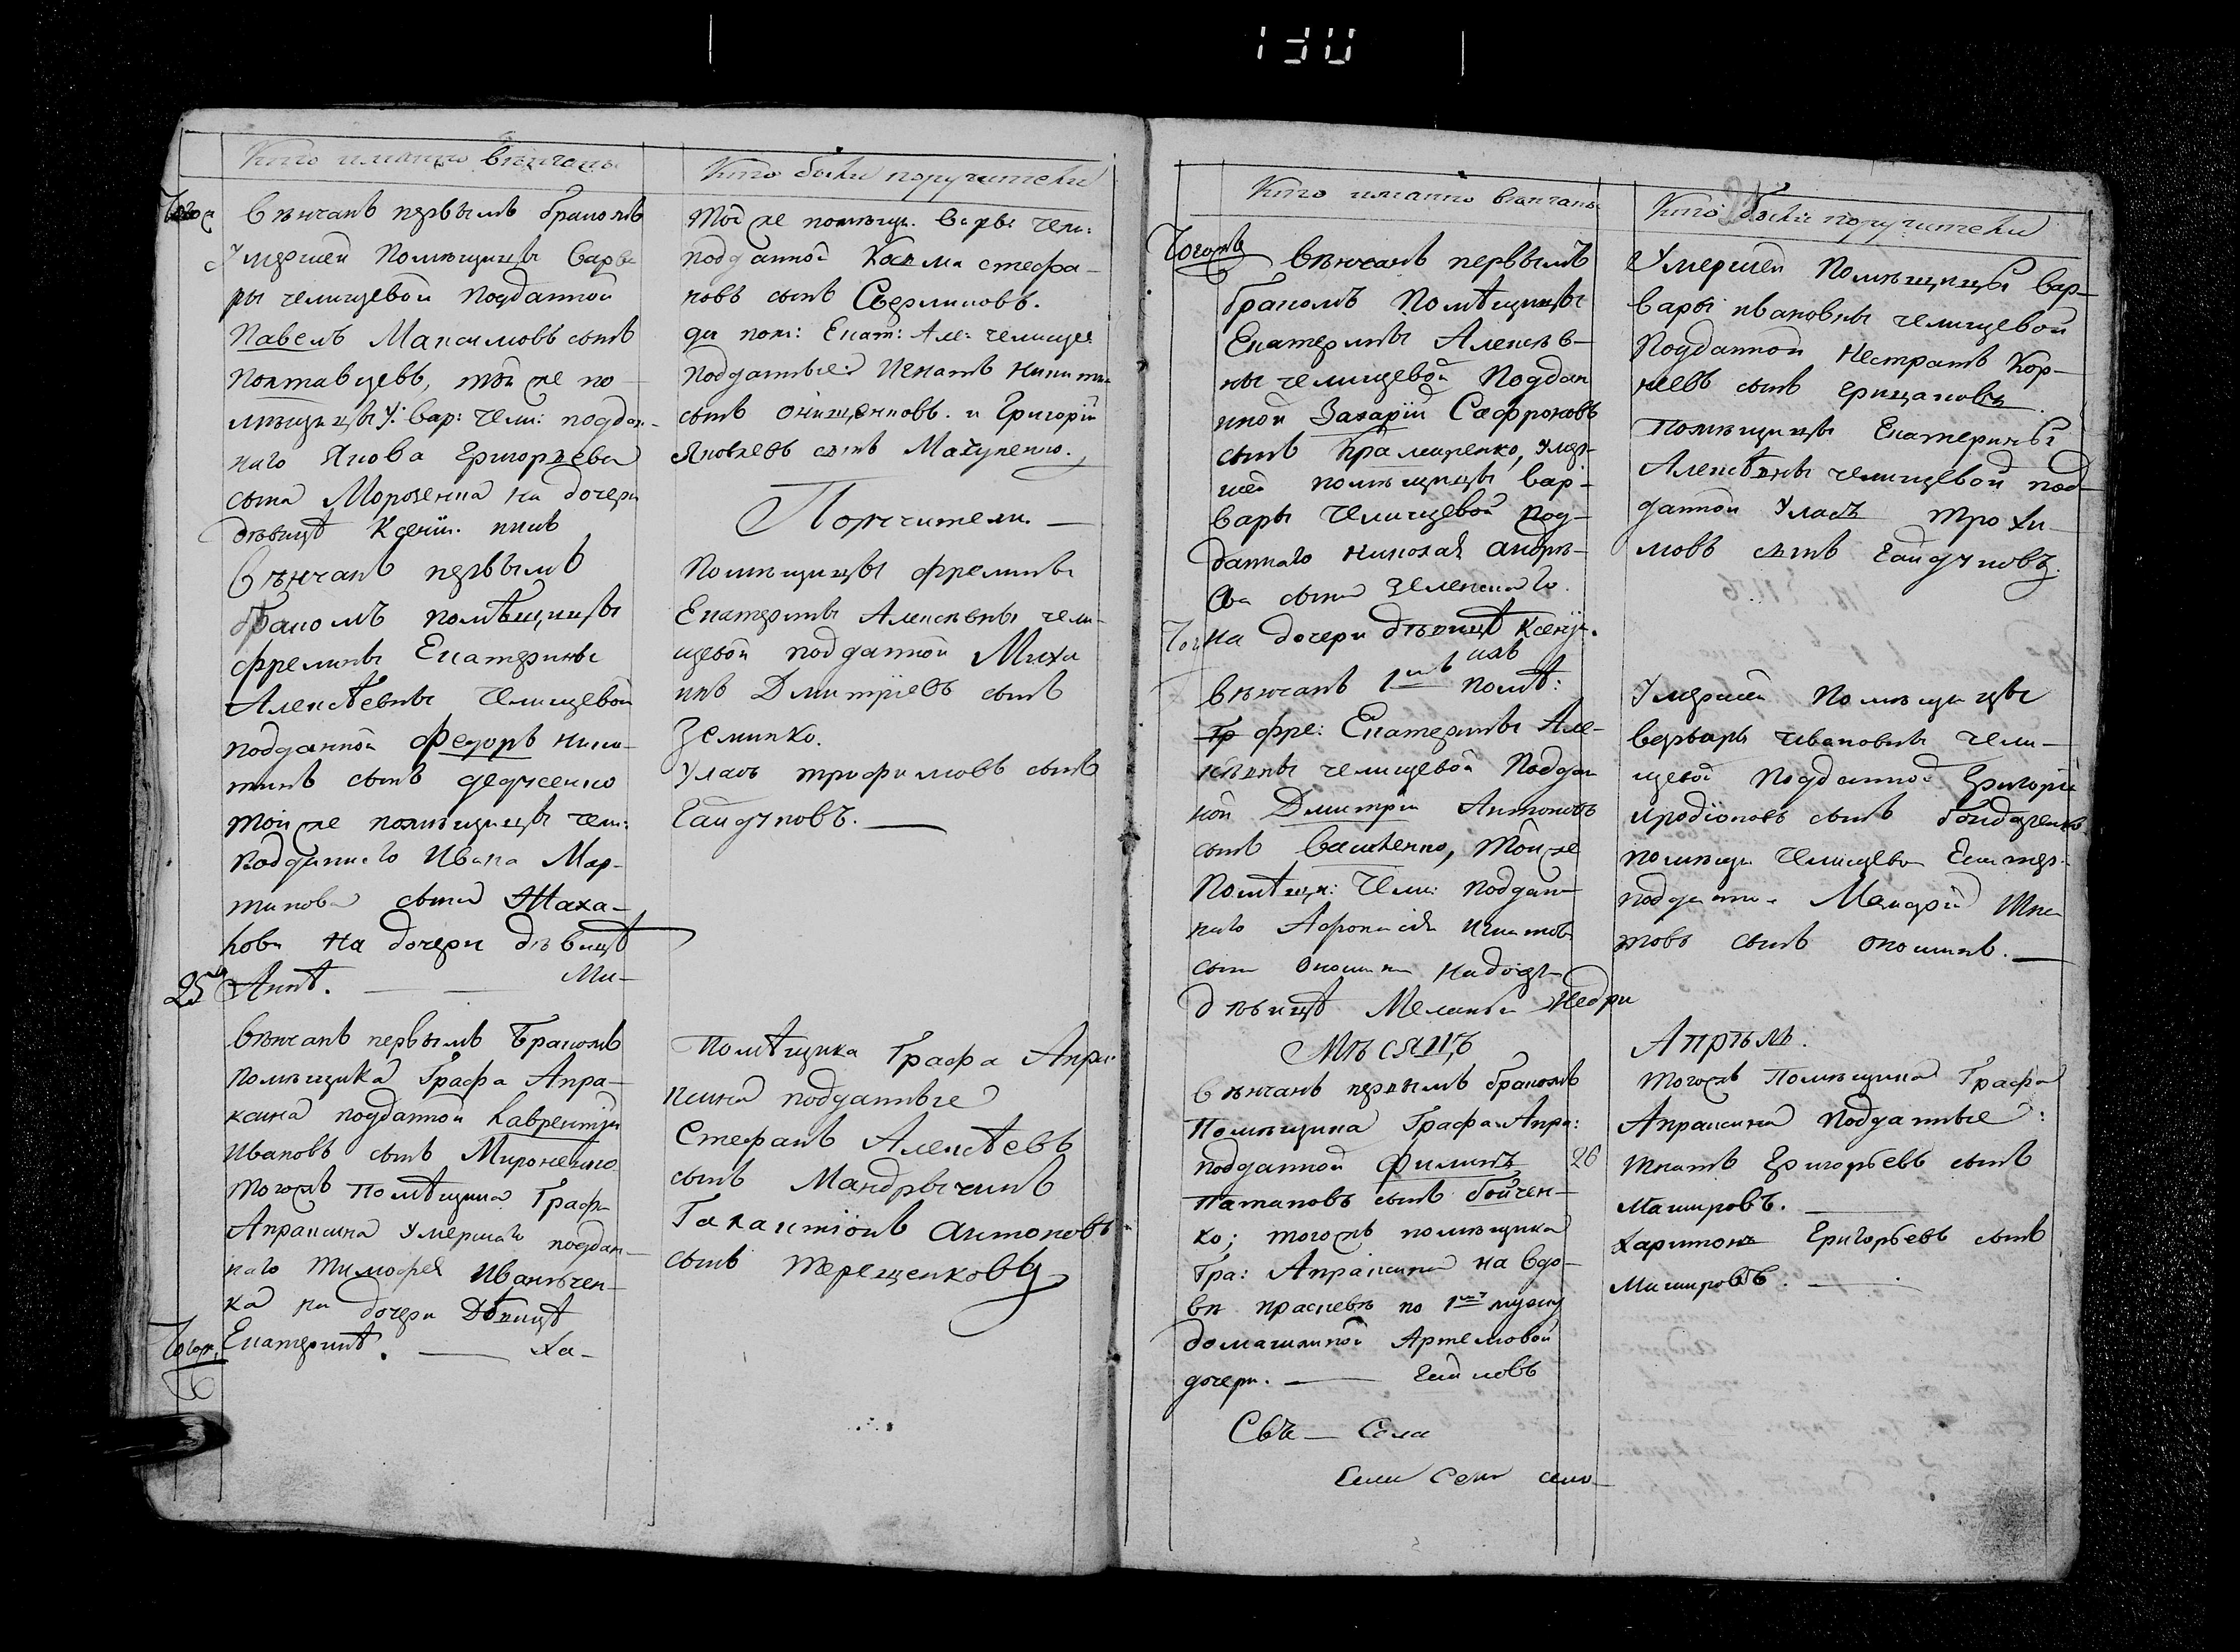 130
Кто имянно венчаны
Того ж
Венчанъ первымъ бракомъ
Умершей Помѣщицы Варва
ры Челищевой подданной
Павелъ Максимовъ сынъ
Полтавцевъ, той же по
мѣщицы У: Вар: Чели: поддан-
наго Якова Григорьева
сына Морозенка на дочери
дѣвицѣ Ксеніи.
Вѣнчанъ первымъ
бракомъ помѣщицы
фрелины Екатерины
Алексѣевны Челищевой
подданной Федоръ Ники-
тинъ сынъ Федусенко
той же помѣщицы Чели:
подданнаго Ивана Мар-
тинова сына Жаха-
кова на дочери дѣвицѣ
25 Аннѣ. — Ми-
Вѣнчанъ первымъ Бракомъ
помѣщика Графа Апра-
ксина подданной Лаврентій
Ивановъ сынъ Мироненко
того жъ Помѣщика Графа
Апраксина умершаго поддан-
наго Тимофея Иваниченка
ка на дочери Дѣвицѣ
Того ж Екатеринѣ. — Ха-
Кто были поручители
той же помѣщи. Варвы Чели:
подданной Козма Стефа-
новъ сынъ Сверликовъ.
да пом: Екат: Але: Челищев
подданные: Игнатъ Никитин
сынъ Онищенковъ. и Григорій
Яковлевъ сынъ Мачуленко.
Поручители. —
Помѣщицы фрелины
Екатерины Алексѣевны Чели-
щевой подданной Миха
илъ Дмитріевъ сынъ
Земинко.
Уласъ Трофимовъ сынъ
Гайдуковъ. —
Помѣщика Графа Апра
ксина подданные
Стефанъ Алексѣевъ
сынъ Мандрычинъ
Галактіонъ Антоновъ
сынъ Терещенковъ
Кто имянно венчаны
Того жъ
Вѣнчанъ первымъ
бракомъ Помѣщицы
Екатерины Алексѣев-
ны Челищевой Поддан
нной Захарій Сафроновъ
сынъ Крамаренко, умер-
шей помѣщицы Вар-
вары Челищевой под-
даннаго Николая Андре-
ева сына Зеленскаго
на дочери дѣвицѣ Ксеніи.
Вѣнчанъ 1мъ помѣ:
фре: Екатерины Але-
ксѣвны Челищевой поддан
ной Дмитрій Антоновъ
сынъ Ващенко, той же
Помѣщи: Чели: поддан-
наго Афонасія Игнатова
сына Окошкина на дочер-
дѣвицѣ Меланьи
Мѣсяцъ
Вѣнчанъ первымъ бракомъ
Помѣщика Графа Апра:
подданной Филипъ 26
Патаповъ сынъ Бойчен-
ко; того жъ помѣщика
Гра: Апраксина на вдо-
вѣ Прасковѣ по 1му мужу
домашкиной Артемовой
дочери. —
Свя — Села
Кто были поручители
Умершей Помѣщицы Вар-
вары Ивановны Челищевой
Подданной Нестратъ Кор-
неевъ сынъ Грицановъ
Помѣщицы Екатерины
Алексѣвны Челищевой под-
данной Уласъ Трохи-
мовъ сынъ Гайдуковъ.
Умершей Помѣщицы
Варвары Ивановны Чели-
щевой подданной Григорій
Иродіоновъ сынъ Бондаренко
помѣщи Челищевой Екатер.
сынъ Окошкинъ. —
Апрѣль.
Того жъ Помѣщика Графа
Апраксина Подданные:
Игнатъ Григорьевъ сынъ
Машировъ. —
Харитонъ Григорьевъ сынъ
Машировъ. —